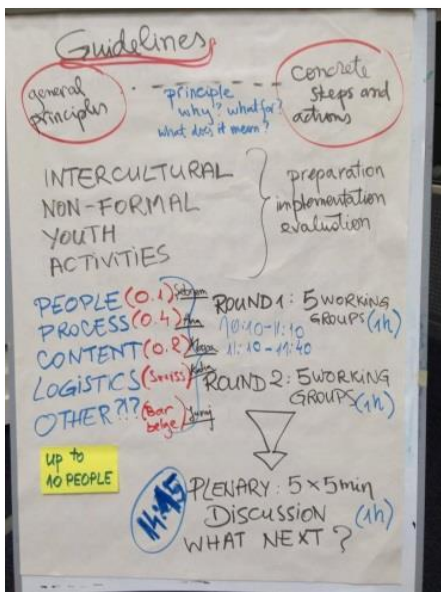 Guidelines
general principles
principle
why? what for?
what does it mean?
concrete
steps and
actions
INTERCULTURAL
NON-FORMAL
YOUTH
ACTIVITIES
preparation
implementation
evaluation
PEOPLE (0.1)
PROCESS (0.4)
CONTENT (0.2)
LOGISTICS (Swiss)
OTHER?!? (Bar belge) Juraj
ROUND 1: 5 WORKING
GROUPS (1h)
10:10-11:10
11:10-11:40
ROUND 2: 5 WORKING
GROUPS (1h)
up to
10 PEOPLE
PLENARY: 5 x 5min
DISCUSSION (1h)
WHAT NEXT?